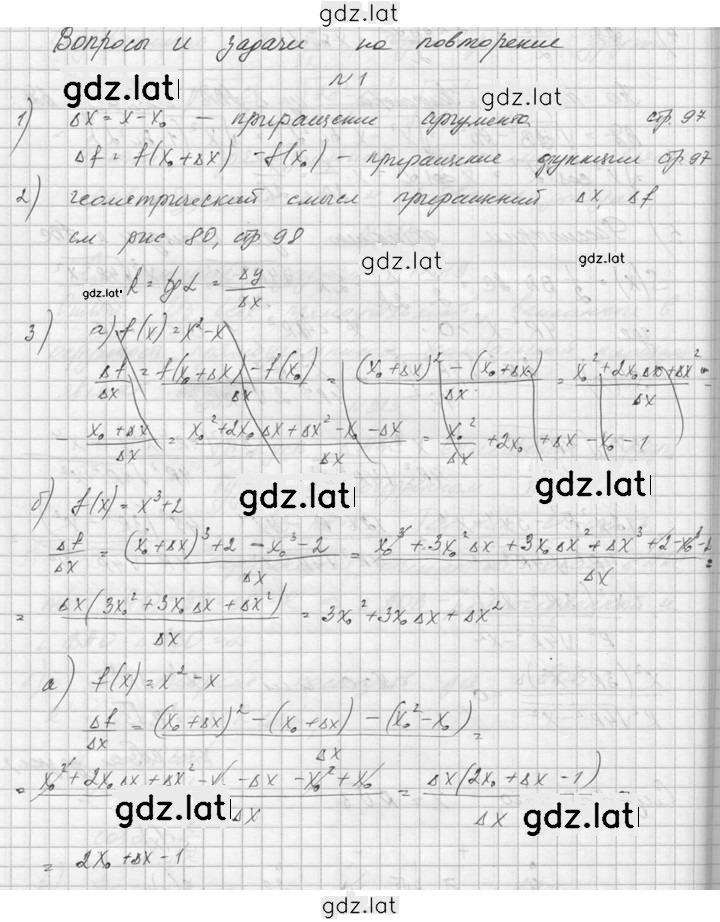 gdz.lat
Вопросы и задачи на повторение
gdz.lat
N 1
gdz.lat
1) Δx = x - x₀ - приращение аргумента стр. 97
Δf = f(x₀ + Δx) - f(x₀) - приращение функции стр 97
2) геометрический смысл приращений Δx, Δf
см рис 80, стр 98
gdz.lat
gdz.lat
gdz.lat
k = tg α = Δy/Δx
3) а) f(x) = x² - x
Δf/Δx = (f(x₀ + Δx) - f(x₀))/Δx = ((x₀ + Δx)² - (x₀ + Δx))/Δx = (x₀² + 2x₀Δx + Δx²)/Δx -
- (x₀ + Δx)/Δx = (x₀² + 2x₀Δx + Δx² - x₀ - Δx)/Δx = x₀²/Δx + 2x₀ + Δx - x₀ - 1
gdz.lat
gdz.lat
б) f(x) = x³ + 2
Δf/Δx = ((x₀ + Δx)³ + 2 - x₀³ - 2)/Δx = (x₀³ + 3x₀²Δx + 3x₀Δx² + Δx³ + 2 - x₀³ - 2)/Δx =
= Δx(3x₀² + 3x₀Δx + Δx²)/Δx = 3x₀² + 3x₀Δx + Δx²
а) f(x) = x² - x
Δf/Δx = ((x₀ + Δx)² - (x₀ + Δx) - (x₀² - x₀))/Δx =
= (x₀² + 2x₀Δx + Δx² - - Δx - x₀² + x₀)/Δx = Δx(2x₀ + Δx - 1)/Δx =
gdz.lat
gdz.lat
= 2x₀ + Δx - 1
gdz.lat